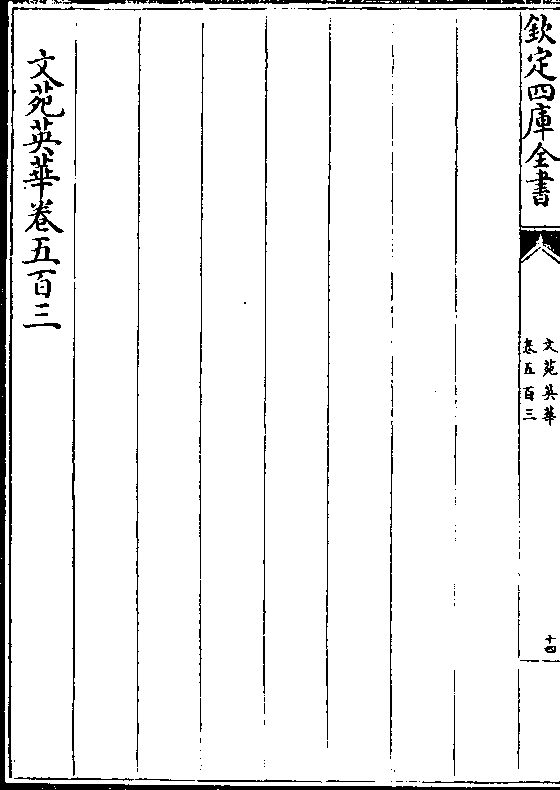 欽定四庫全書
文苑英華
卷五百三
十四
文苑英華卷五百三